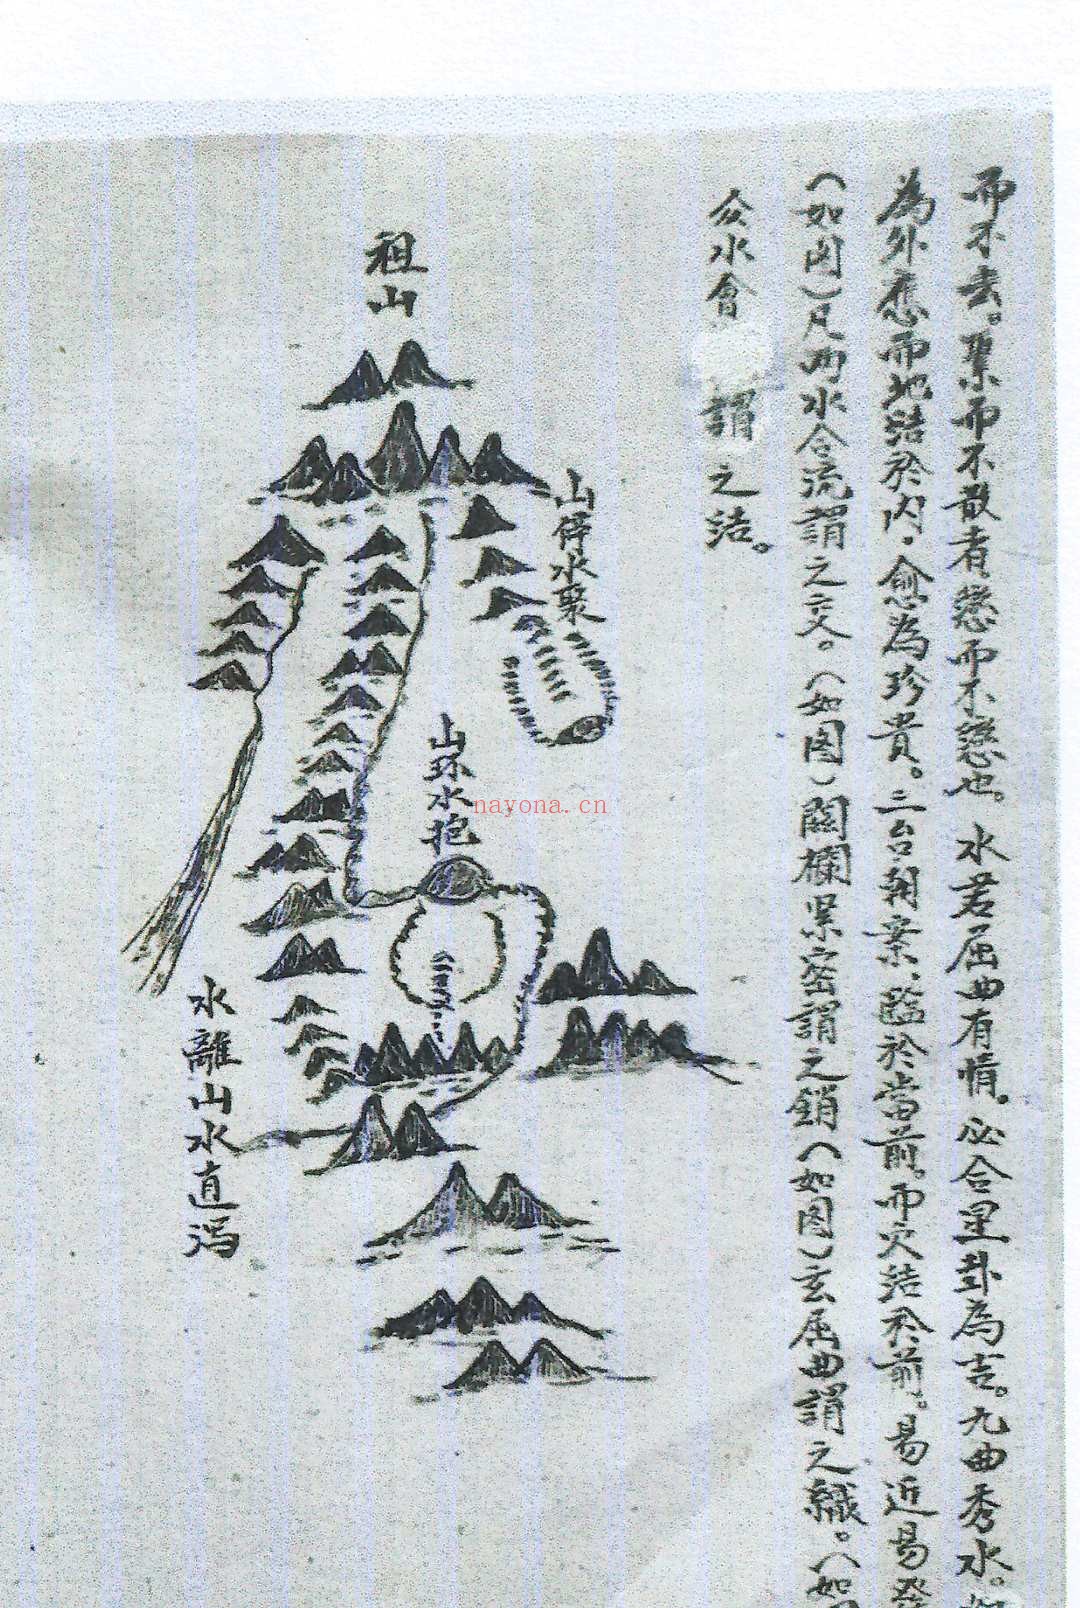 而不去。聚而不散者。戀而不戀也。水若屈曲有情。必合星卦為吉。九曲秀水。
為外應而地結於内。愈為珍貴。三台朝案。臨於當前。而穴結於前。易近易發
（如図）凡两水合流謂之交。（如图）関欄緊密謂之鎖（如图）玄屈曲謂之織。（如
众水會 謂之结。
祖山
山停水聚
山环水抱
水離山水直瀉
nayona.cn